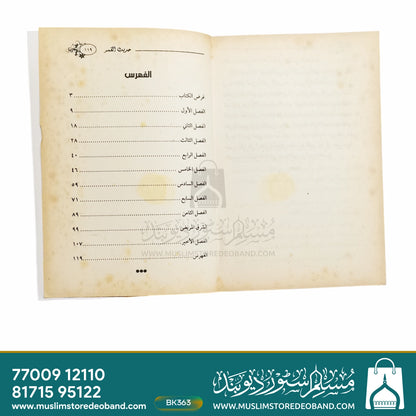 ١١٩
حديث القمر
الفهرس
غرض الكتاب ٣
الفصل الأول ٩
الفصل الثاني ١٨
الفصل الثالث ٢٨
الفصل الرابع ٤٠
الفصل الخامس ٤٦
الفصل السادس ٥٩
الفصل السابع ٧١
الفصل الثامن ٨٩
الشرق المريض ٩٩
الفصل الأخير ١٠٧
الفهرس ١١٩
مسلم سٹور دیوبند
WWW.MUSLIMSTOREDEOBAND.COM
77009 12110
81715 95122
www.muslimstoredeoband.com
BK363
مسلم سٹور دیوبند
WWW.MUSLIMSTOREDEOBAND.COM